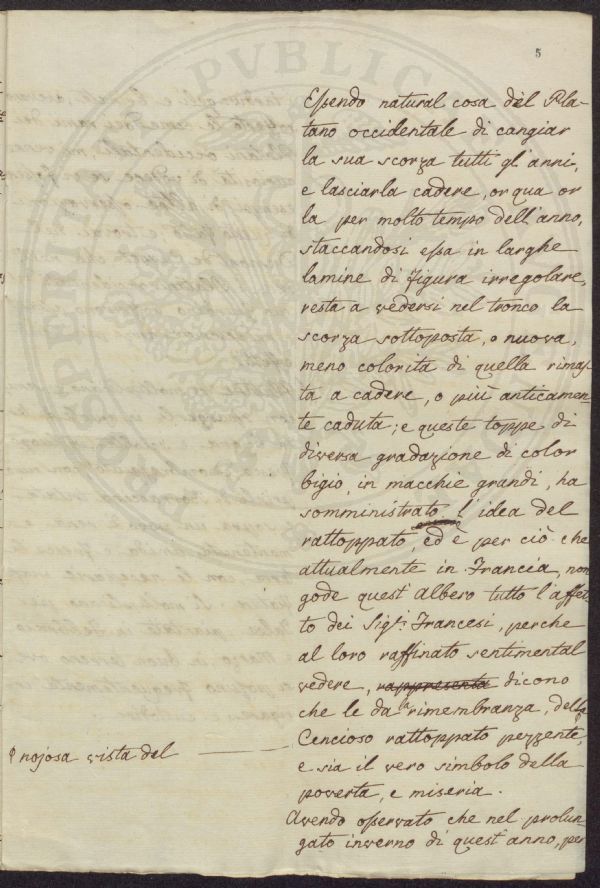 5
Essendo natural cosa del Pla-
tano occidentale di cangiar
la sua scorza tutti gl'anni,
e lasciarla cadere, or qua or
la per molto tempo dell'anno,
staccandosi essa in larghe
lamine di figura irregolare,
resta a vedersi nel tronco la
scorza sottoposta, o nuova,
meno colorita di quella rimas-
ta a cadere, o più anticamen-
te caduta; e queste toppe di
diversa gradazione di color
bigio, in macchie grandi, ha
somministrato l'idea del
rattoppato, ed è per ciò che
attualmente in Francia, non
gode quest'Albero tutto l'affet-
to dei Sigri. Francesi, perche
al loro raffinato sentimental
vedere, rappresenta dicono
che le da la rimembranza, della
Cencioso rattoppato pezzente,
nojosa vista del
e sia il vero simbolo della
poverta, e miseria.
Avendo osservato che nel prolun-
gato inverno di quest'anno, per